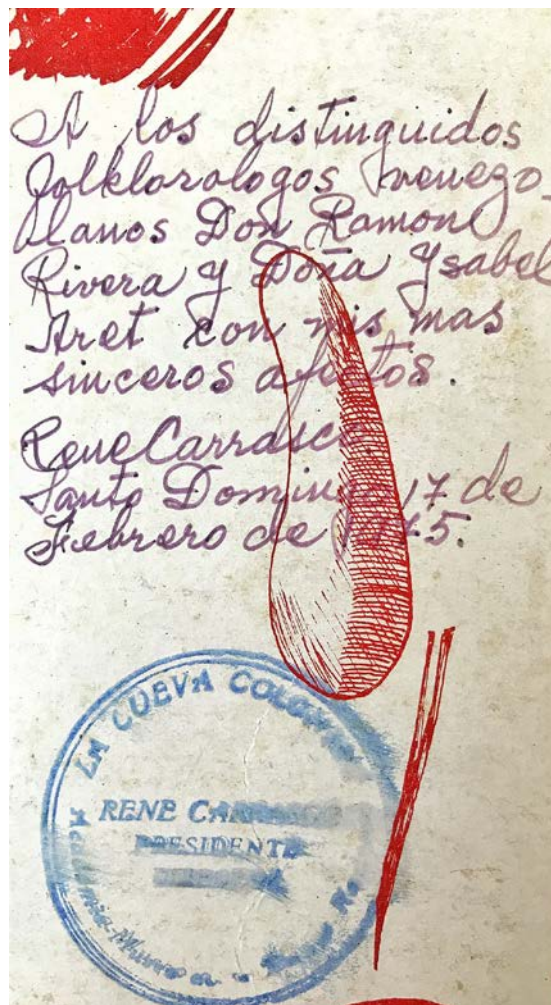 A los distinguidos
folklorologos venezo-
lanos Don Ramon
Rivera y Doña Ysabel
Aret con mis mas
sinceros afectos.
Rene Carrasco
Santo Domingo 17 de
Febrero de 1975.
LA CUEVA COLONIAL
RENE CARRASCO
PRESIDENTE